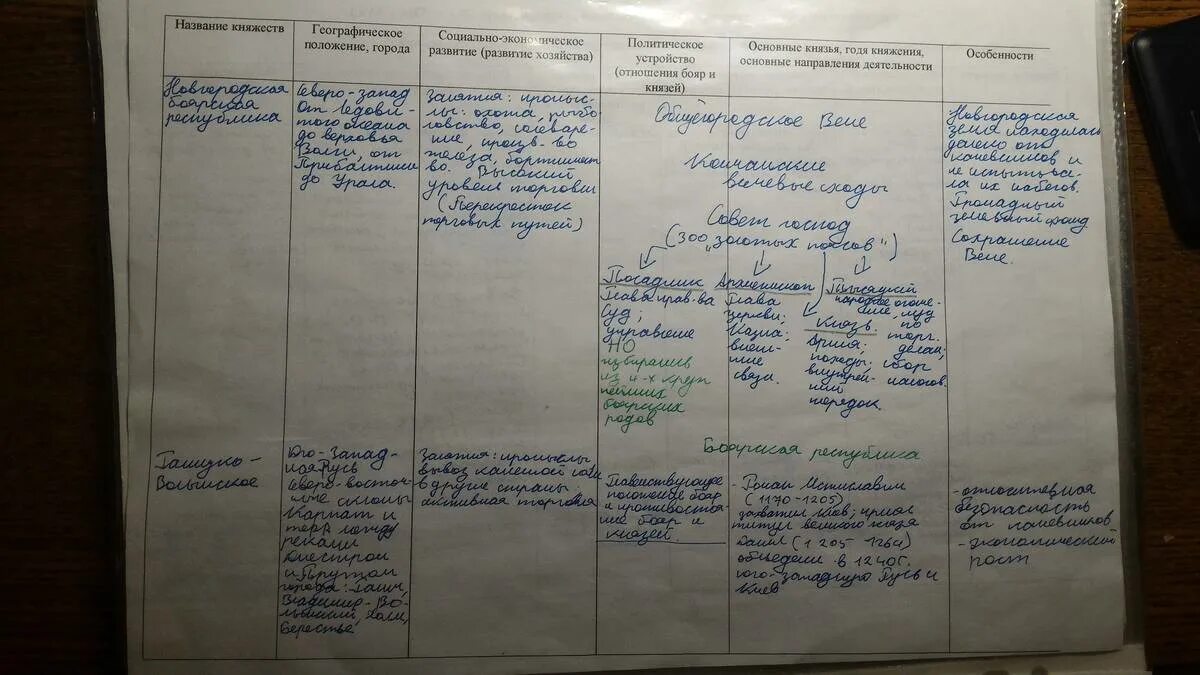 Название княжеств
Географическое
положение, города
Социально-экономическое
развитие (развитие хозяйства)
Политическое
устройство
(отношения бояр и
князей)
Основные князья, годя княжения,
основные направления деятельности
Особенности
Новгородская
боярская
республика
Северо-запад
от Ледови-
того океана
до верховья
Волги, от
Прибалтики
до Урала.
Занятия: промыс-
лы: охота, рыбо-
ловство, солеваре-
ние, произв-во
железа, бортничест
во. Высокий
уровень торговли
(Перекресток
торговых путей)
Общегородское Вече
Кончанские
вечевые сходы
Совет господ
(300 "золотых поясов")
Посадник
Глава прав-ва
Суд;
управление
НО
избирались
из 4-х круп
нейших
боярских
родов
Архиепископ
Глава
церкви;
Казна;
внеш-
ние
связи.
Князь
Армия;
походы;
внутрен-
ний
порядок.
Тысяцкий
народное ополче-
ние, суд
по
торг.
делам;
сбор
налогов.
Боярская республика
Новгородская
земля находилась
далеко от
кочевников и
не испытыва-
ла их набегов.
Громадный
земельный фонд
Сохранение
Вече.
Галицко-
Волынское
Юго-Запад-
ная Русь
Северо-восточ-
ные склоны
Карпат и
терр. между
реками
Днестром
и Прутом
города: Галич,
Владимир-Во-
лынский, Холм,
Берестье
Занятия: промыслы
вывоз каменной соли
в другие страны.
активная торговля
Главенствующее
положение бояр
и противостоя-
ние бояр и
князей.
- Роман Мстиславич
(1170-1205)
захватил Киев; принял
титул великого князя
Данил (1205-1264)
объедени. в 1240г.
юго-западную Русь и
Киев
- относительная
безопасность
от кочевников
- экономический
рост